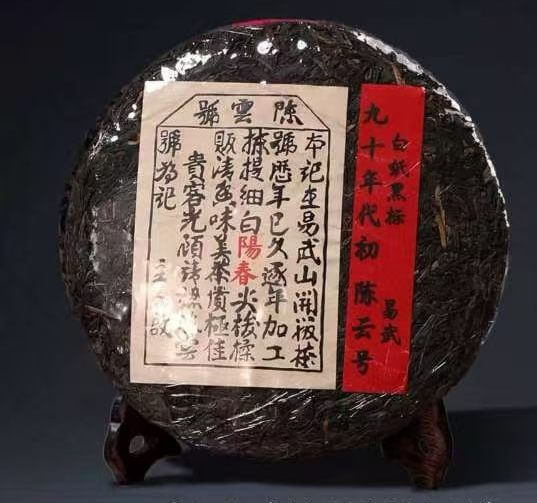 陳雲號
本記在易武山開
號歷年已久逐年加工
揀提細白陽春尖
販清色味美茶質極佳
貴客光顧請認雲
號為記 主人啟
白紙黑标 易武
九十年代初 陈云号